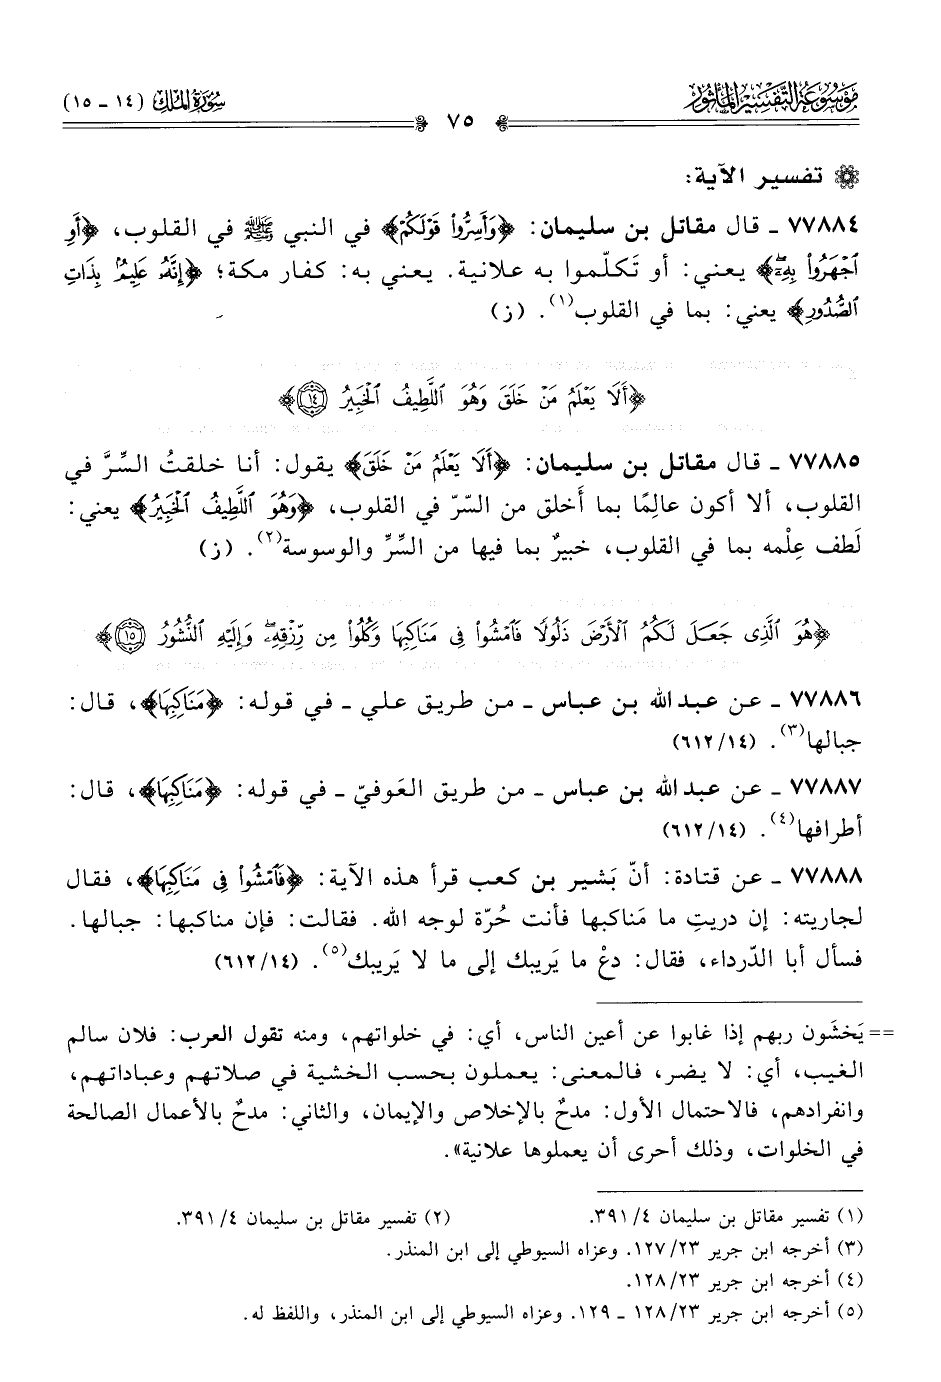 موسوعة التفسير المأثور
سورة الملك (١٤ - ١٥)
٧٥
تفسير الآية:
٧٧٨٨٤ - قال مقاتل بن سليمان: ﴿وَأَسِرُّوا۟ قَوْلَكُمْ﴾ في النبي ﷺ في القلوب، ﴿أَوِ
ٱجْهَرُوا۟ بِهِۦٓ﴾ يعني: أو تَكلّموا به علانية. يعني به: كفار مكة؛ ﴿إِنَّهُۥ عَلِيمٌۢ بِذَاتِ
ٱلصُّدُورِ﴾ يعني: بما في القلوب(١). (ز)
﴿أَلَا يَعْلَمُ مَنْ خَلَقَ وَهُوَ ٱللَّطِيفُ ٱلْخَبِيرُ ١٤﴾
٧٧٨٨٥ - قال مقاتل بن سليمان: ﴿أَلَا يَعْلَمُ مَنْ خَلَقَ﴾ يقول: أنا خلقتُ السِّرَّ في
القلوب، ألا أكون عالِمًا بما أَخلق من السّرّ في القلوب، ﴿وَهُوَ ٱللَّطِيفُ ٱلْخَبِيرُ﴾ يعني:
لَطف عِلْمه بما في القلوب، خبيرٌ بما فيها من السِّرِّ والوسوسة(٢). (ز)
﴿هُوَ ٱلَّذِى جَعَلَ لَكُمُ ٱلْأَرْضَ ذَلُولًا فَٱمْشُوا۟ فِى مَنَاكِبِهَا وَكُلُوا۟ مِن رِّزْقِهِۦ وَإِلَيْهِ ٱلنُّشُورُ ١٥﴾
٧٧٨٨٦ - عن عبد الله بن عباس - من طريق علي - في قوله: ﴿مَنَاكِبِهَا﴾، قال:
جبالها(٣). (٦١٢/١٤)
٧٧٨٨٧ - عن عبد الله بن عباس - من طريق العَوفيّ - في قوله: ﴿مَنَاكِبِهَا﴾، قال:
أطرافها(٤). (٦١٢/١٤)
٧٧٨٨٨ - عن قتادة: أنّ بَشير بن كعب قرأ هذه الآية: ﴿فَٱمْشُوا۟ فِى مَنَاكِبِهَا﴾، فقال
لجاريته: إن دريتِ ما مَناكبها فأنت حُرّة لوجه الله. فقالت: فإن مناكبها: جبالها.
فسأل أبا الدّرداء، فقال: دعْ ما يَريبك إلى ما لا يَريبك(٥). (٦١٢/١٤)
== يَخشَون ربهم إذا غابوا عن أعين الناس، أي: في خلواتهم، ومنه تقول العرب: فلان سالم
الغيب، أي: لا يضر، فالمعنى: يعملون بحسب الخشية في صلاتهم وعباداتهم،
وانفرادهم، فالاحتمال الأول: مدحٌ بالإخلاص والإيمان، والثاني: مدحٌ بالأعمال الصالحة
في الخلوات، وذلك أحرى أن يعملوها علانية».
(١) تفسير مقاتل بن سليمان ٤/ ٣٩١. (٢) تفسير مقاتل بن سليمان ٤/ ٣٩١.
(٣) أخرجه ابن جرير ٢٣/ ١٢٧. وعزاه السيوطي إلى ابن المنذر.
(٤) أخرجه ابن جرير ٢٣/ ١٢٨.
(٥) أخرجه ابن جرير ٢٣/ ١٢٨ - ١٢٩. وعزاه السيوطي إلى ابن المنذر، واللفظ له.